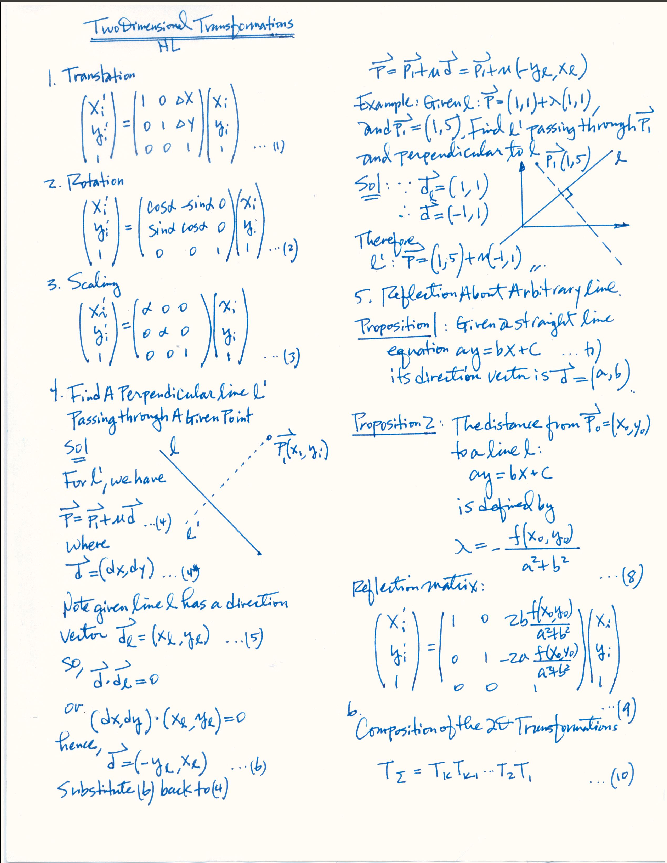 Two Dimensional Transformations
HL
1. Translation
(xi' yi' 1) = (1 0 ΔX 0 1 ΔY 0 0 1)(xi yi 1) ...(1)
2. Rotation
(xi' yi' 1) = (cosα -sinα 0 sinα cosα 0 0 0 1)(xi yi 1) ...(2)
3. Scaling
(xi' yi' 1) = (α 0 0 0 α 0 0 0 1)(xi yi 1) ...(3)
4. Find A Perpendicular line l'
Passing through A Given Point
Sol
l
P1(xi, yi)
For l', we have
P = P1 + μd ...(4)
l'
where
d = (dx, dy) ...(4)
Note given line l has a direction
vector dl = (xl, yl) ...(5)
So, d·dl = 0
or (dx, dy)·(xl, yl) = 0
hence, d = (-yl, xl) ...(6)
Substitute (6) back to (4)
P = P1 + μd = P1 + μ(-yl, xl)
Example: Given l: P = (1,1) + λ(1,1),
and P1 = (1,5), Find l' passing through P1
and perpendicular to l
P1(1,5)
l
Sol: ∵ dl = (1,1)
∴ d = (-1,1)
Therefore
l': P = (1,5) + μ(-1,1) //
5. Reflection About Arbitrary line.
Proposition 1: Given a straight line
equation ay = bx + c ...(7)
its direction vector is d = (a, b)
Proposition 2: The distance from P0 = (x0, y0)
to a line l:
ay = bx + c
is defined by
λ = - f(x0, y0) / a²+b² ...(8)
Reflection matrix:
(xi' yi' 1) = (1 0 2b f(x0,y0)/a²+b² 0 1 -2a f(x0,y0)/a²+b² 0 0 1)(xi yi 1) ...(9)
6.
Composition of the 2D Transformations
TΣ = TK TK-1 ... T2 T1 ...(10)